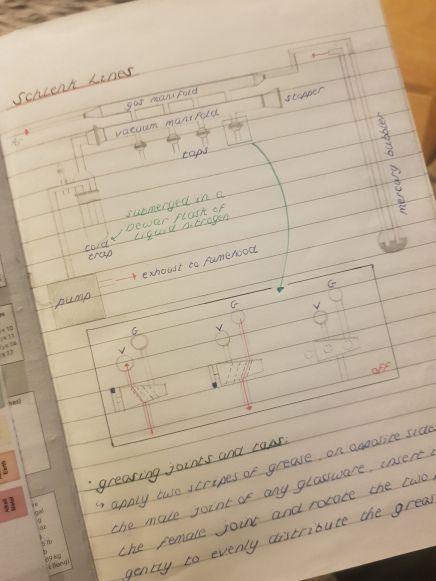 Schlenk Lines
gas manifold
vacuum manifold
stopper
taps
mercury bubbler
submerged in a
Dewar flask of
liquid nitrogen
cold
trap
exhaust to fumehood
pump
G
V
G
V
G
V
OFF
• greasing joints and taps:
↳ apply two stripes of grease on opposite side
the male joint of any glassware. insert
the female joint and rotate the two
gently to evenly distribute the greas